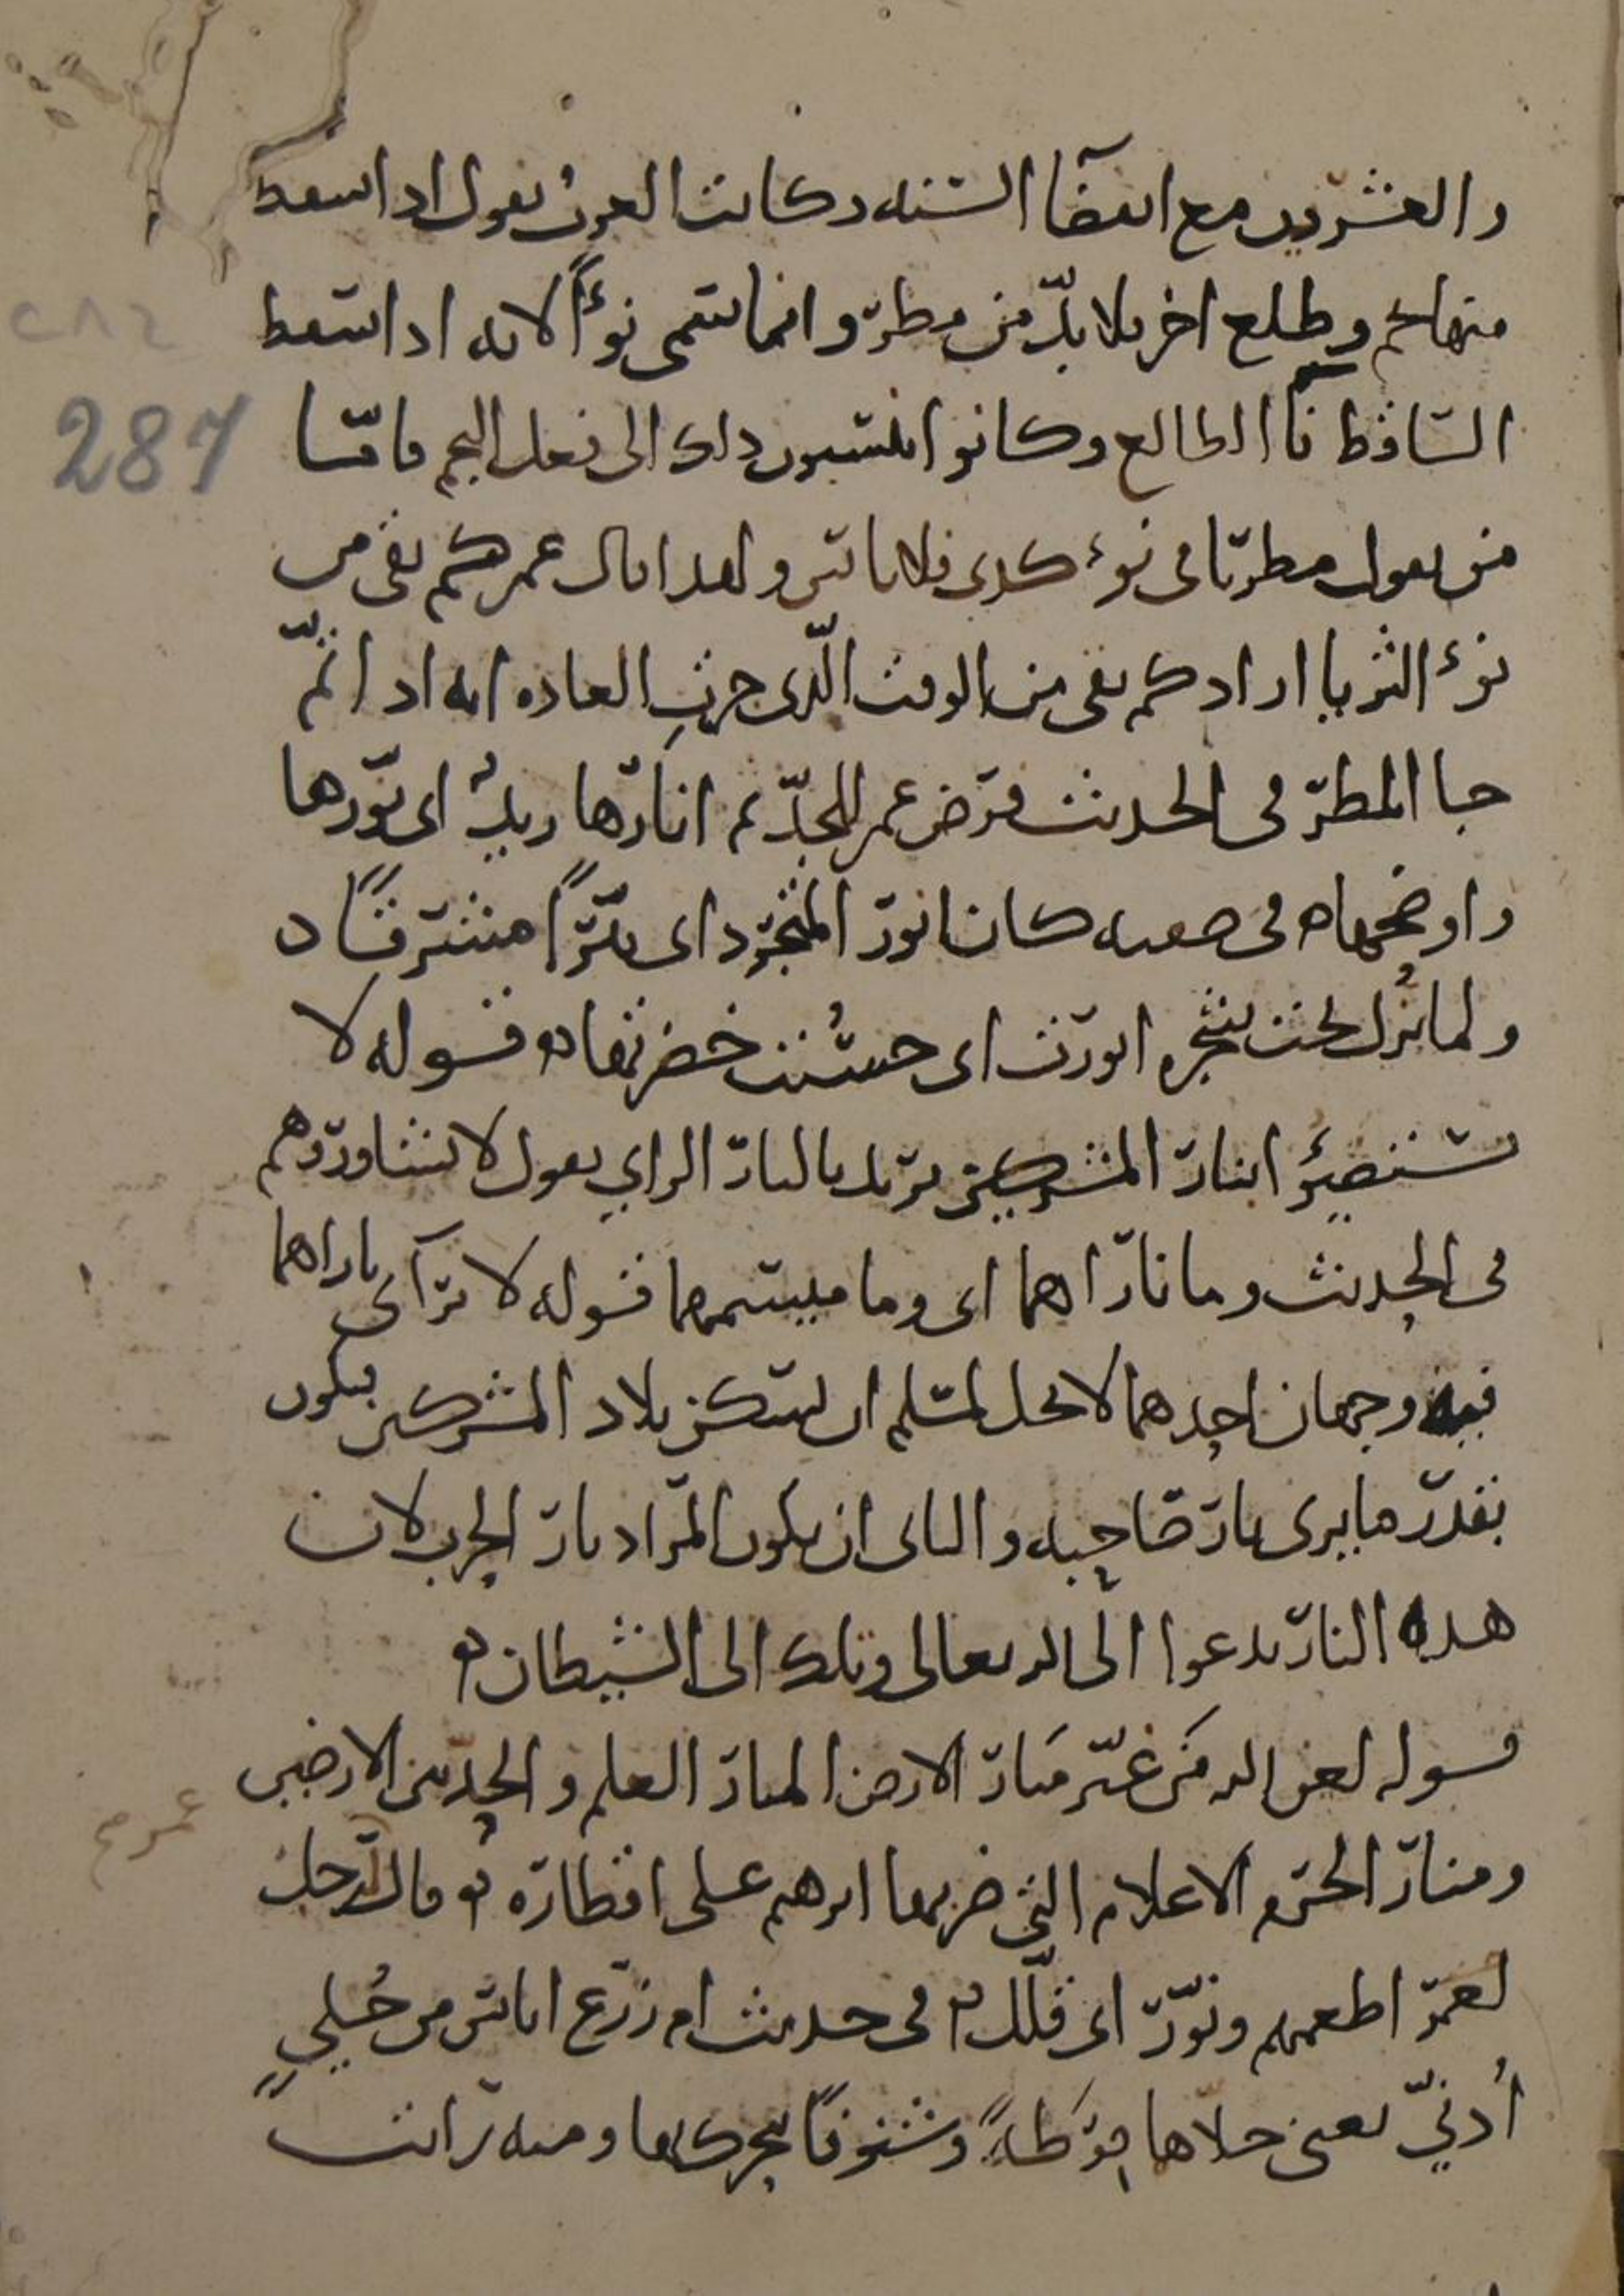 والعشرين مع انقضآ السنه وكانت العرب تقول اذا سقط
منها نجم وطلع اخر فلا بدّ من مطر وانما سمى نوءًا لانه اذا سقط
الساقط نآ الطالع وكانوا ينسبون ذلك الى فعل النجم فامّا
من يقول مطرنا فى نوء كذى فلا باس ولهذا قال عمر كم بقى من
نوء الثريا اراد كم بقى من الوقت الّذى جرت العاده انه اذا تمّ
جا المطر فى الحديث فرض عمر للجدّ ثم انارها زيدٌ اى نوّرها
واوضحها ه فى صفته كان انور المتجرد اى نيّرًا مشرقًا ه
ولما نُزل تحت شجره انورت اى حسُنت خضرتها ه قوله لا
تستضيؤا بنار المشركين يريد بالنار الراي يقول لا تشاوروهم
فى الحديث وما ناراهما اى وما ميسمهما قوله لا ترآى ناراهما
فيه وجهان احدهما لا يحل لمسلم ان يسكن بلاد المشركين فيكون
بقدر ما يرى نار صاحبه والثانى ان يكون المراد نار الحرب لان
هذه النار تدعوا الى الله تعالى وتلك الى الشيطان ه
قوله لعن الله مَن غيّر مَنار الارض المنار العلم والحد بين الارضين
ومنار الحرم الاعلام التي ضربها ابرهيم على اقطاره ه وقال رجل
لعمر اطعمهم ونوّر اى قلّل ه فى حديث ام زرع اناس من حُليٍ
أُدنيّ يعنى حلاها قِرَطَةً وشنوفًا تتحرك بها ومنه رايت
287